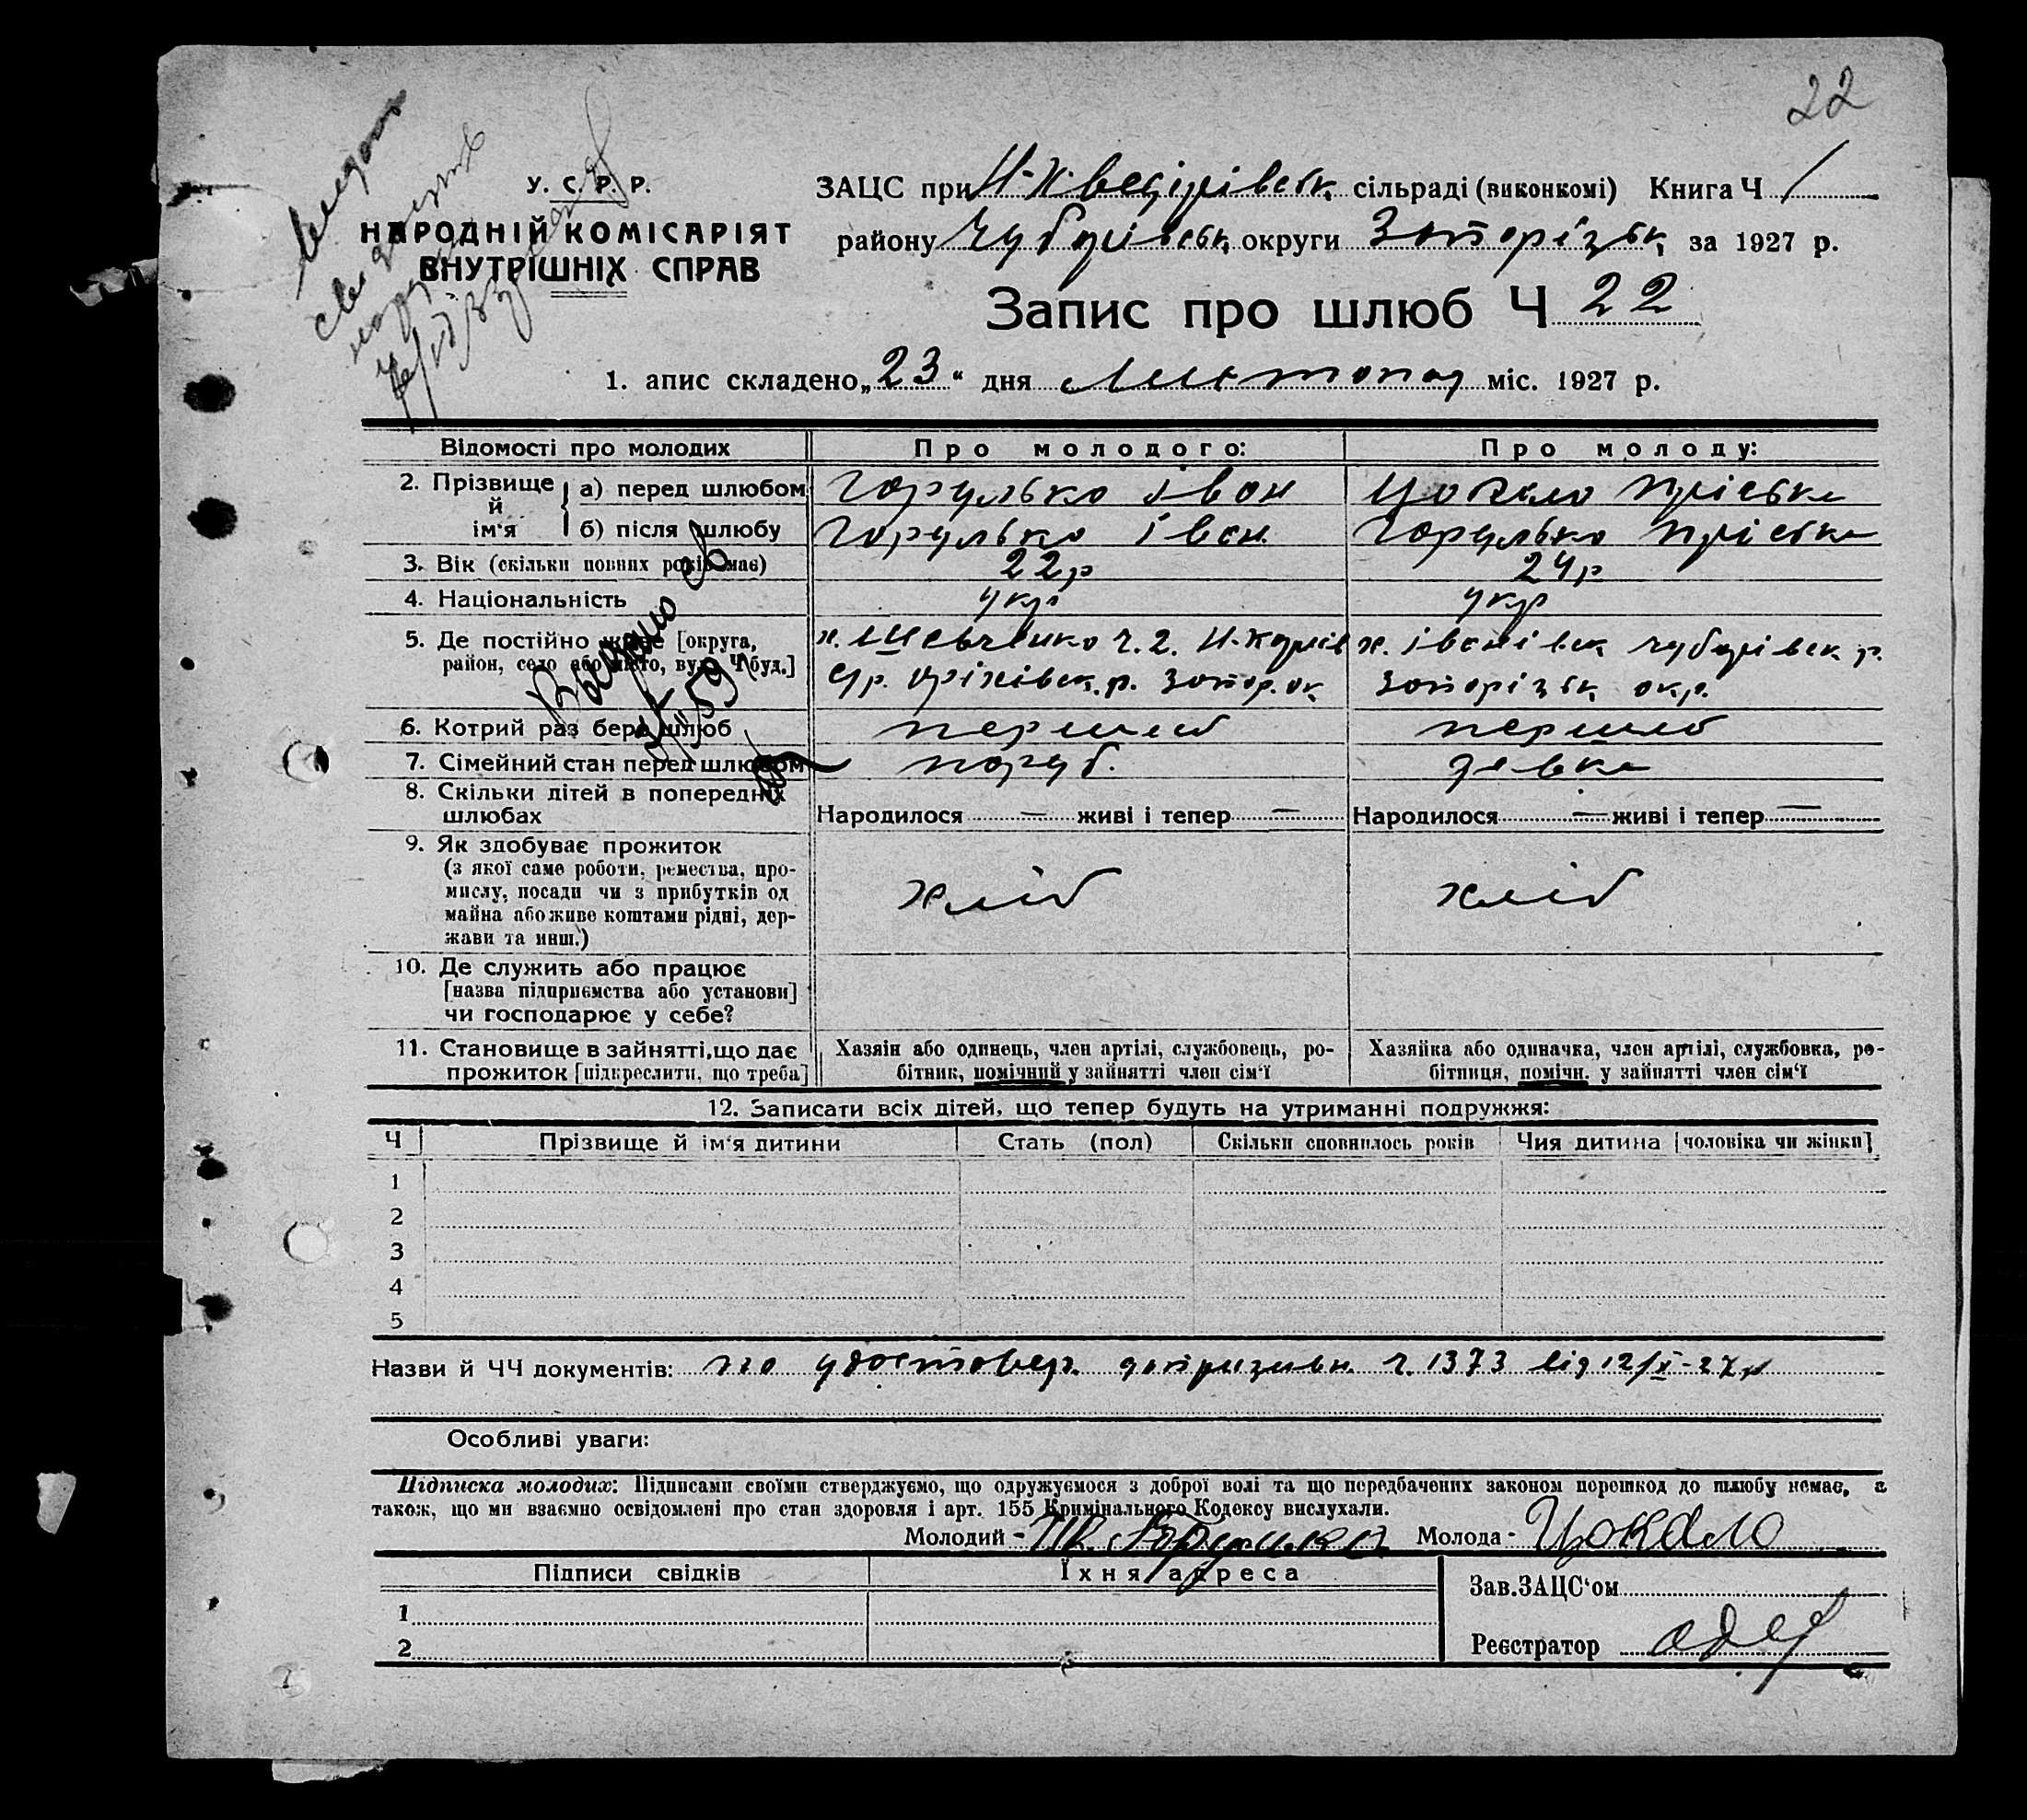 22
У. С. Р. Р.
НАРОДНІЙ КОМІСАРІЯТ
ВНУТРІШНІХ СПРАВ
ЗАЦС при сільраді (виконкомі) Книга Ч 1
району Чубарівськ округи Запорізьк за 1927 р.
Запис про шлюб Ч 22
1. апис складено „23“ дня Листопад міс. 1927 р.
Відомості про молодих Про молодого: Про молоду:
2. Прізвище й ім'я
а) перед шлюбом Горулько Іван Цокало Пріська
б) після шлюбу Горулько Іван Горулько Пріська
3. Вік (скільки повних років має) 22 р 24 р
4. Національність укр укр
5. Де постійно живе [округа, район, село або місто, вул., Ч буд.]
х. Шевченко ч. 2. х. Іванівськ Чубарівськ р.
Оріхівськ. р. Запор. ок Запорізьк окр.
6. Котрий раз бере шлюб перший
7. Сімейний стан перед шлюбом поруб. девка
8. Скільки дітей в попередніх шлюбах
Народилося — живі і тепер — Народилося — живі і тепер —
9. Як здобуває прожиток
(з якої саме роботи, ремества, про-
мислу, посади чи з прибутків од
майна або живе коштами рідні, дер-
жави та инш.)
хліб хліб
10. Де служить або працює
[назва підприємства або установи]
чи господарює у себе?
11. Становище в зайнятті, що дає
прожиток [підкреслити, що треба]
Хазяін або одинець, член артілі, службовець, ро-
бітник, помічний у зайнятті член сім'ї
Хазяйка або одиначка, член артілі, службовка, ро-
бітниця, помічн. у зайнятті член сім'ї
12. Записати всіх дітей, що тепер будуть на утриманні подружжя:
Ч Прізвище й ім'я дитини Стать (пол) Скільки сповнилось років Чия дитина [чоловіка чи жінки]
1
2
3
4
5
Назви й ЧЧ документів: по удостовер. допризивн. ч. 1373 від 12/X-27 р
Особливі уваги:
Підписка молодих: Підписами своїми стверджуємо, що одружуємося з доброї волі та що передбачених законом перешкод до шлюбу немає, а
також, що ми взаємно освідомлені про стан здоровля і арт. 155 Кримінального Кодексу вислухали.
Молодий - Молода - Цокало
Підписи свідків Їхня адреса
Зав. ЗАЦС'ом
1
2
Реєстратор